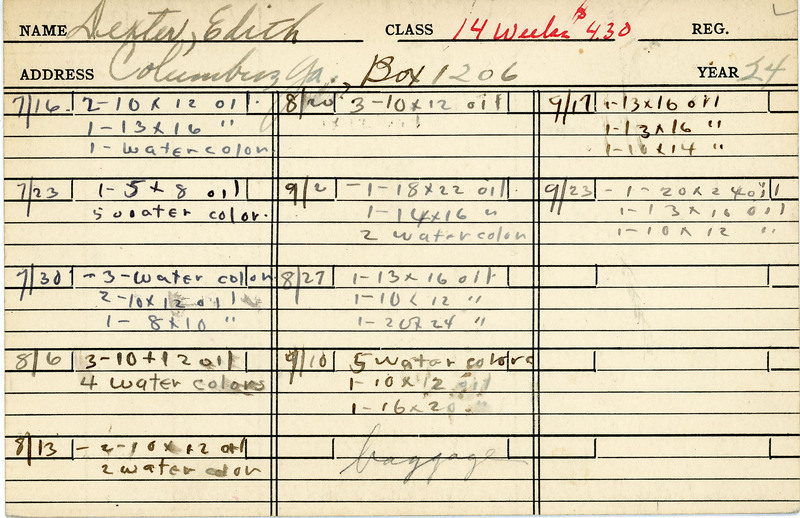 NAME Dexter, Edith CLASS 14 Weeks $4.30 REG.
ADDRESS Columbus, Ga., Box 1206 YEAR 24
7/16. 2-10 x 12 oil.
1-13 x 16 "
1- water color
7/23 1- 5 x 8 oil
5 water color.
7/30 - 3-water color
2-10x12 oil
1- 8x10 "
8/6 3-10x12 oil
4 water colors
8/13 - 2-10 x 12 oil
2 water color
8/20 3-10x12 oil
9/2 -1-18x22 oil.
1-14x16 "
2 water color
8/27 1-13x16 oil
1-10x12 "
1-20x24 "
9/10 5 water colors
1-10x12 oil
1-16x20 "
baggage
9/17 1-13x16 oil
1-13x16 "
1-10x14 "
9/23 -1-20x24 oil
1-13x16 oil
1-10x12 "